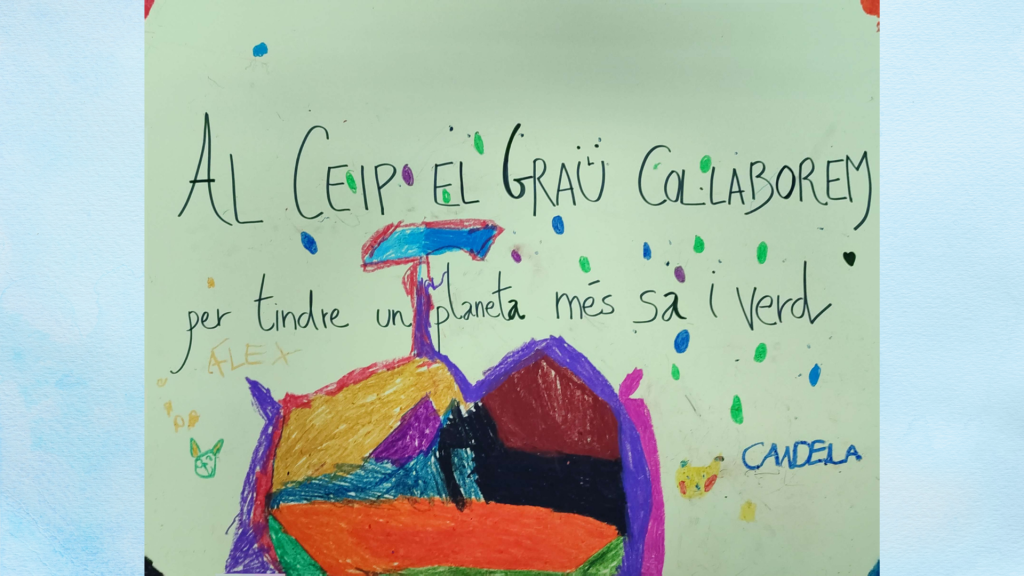 AL CEIP EL GRAÜ COL·LABOREM
per tindre un planeta més sa i verd
ÀLEX
CANDELA